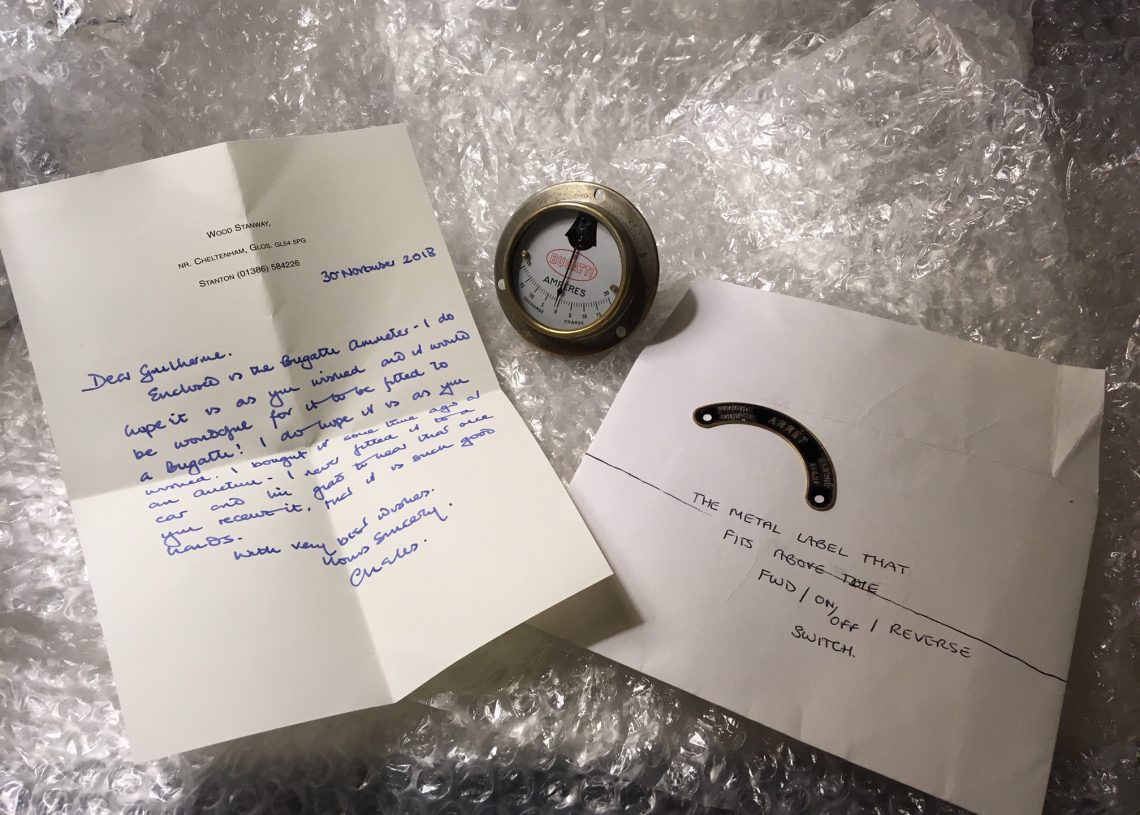 WOOD STANWAY,
NR. CHELTENHAM, GLOS. GL54 5PG
STANTON (01386) 584226
30 November 2018
Dear Guilherme.
Enclosed is the Bugatti Ammeter - I do
hope it is as you wished and it would
be wonderful for it to be fitted to
a Bugatti! I do hope it is as you
wished. I bought it some time ago at
an auction - I never fitted it to a
car and I'm glad to hear that once
you receive it, that it is such good
hands.
With very best wishes.
Yours sincerely.
Charles.
BUGATTI
AMPÈRES
20 15 10 5 0 5 10 15 20
DISCHARGE CHARGE
MARCHE ARRET MARCHE
THE METAL LABEL THAT
FITS ABOVE THE
FWD / ON/OFF / REVERSE
SWITCH.